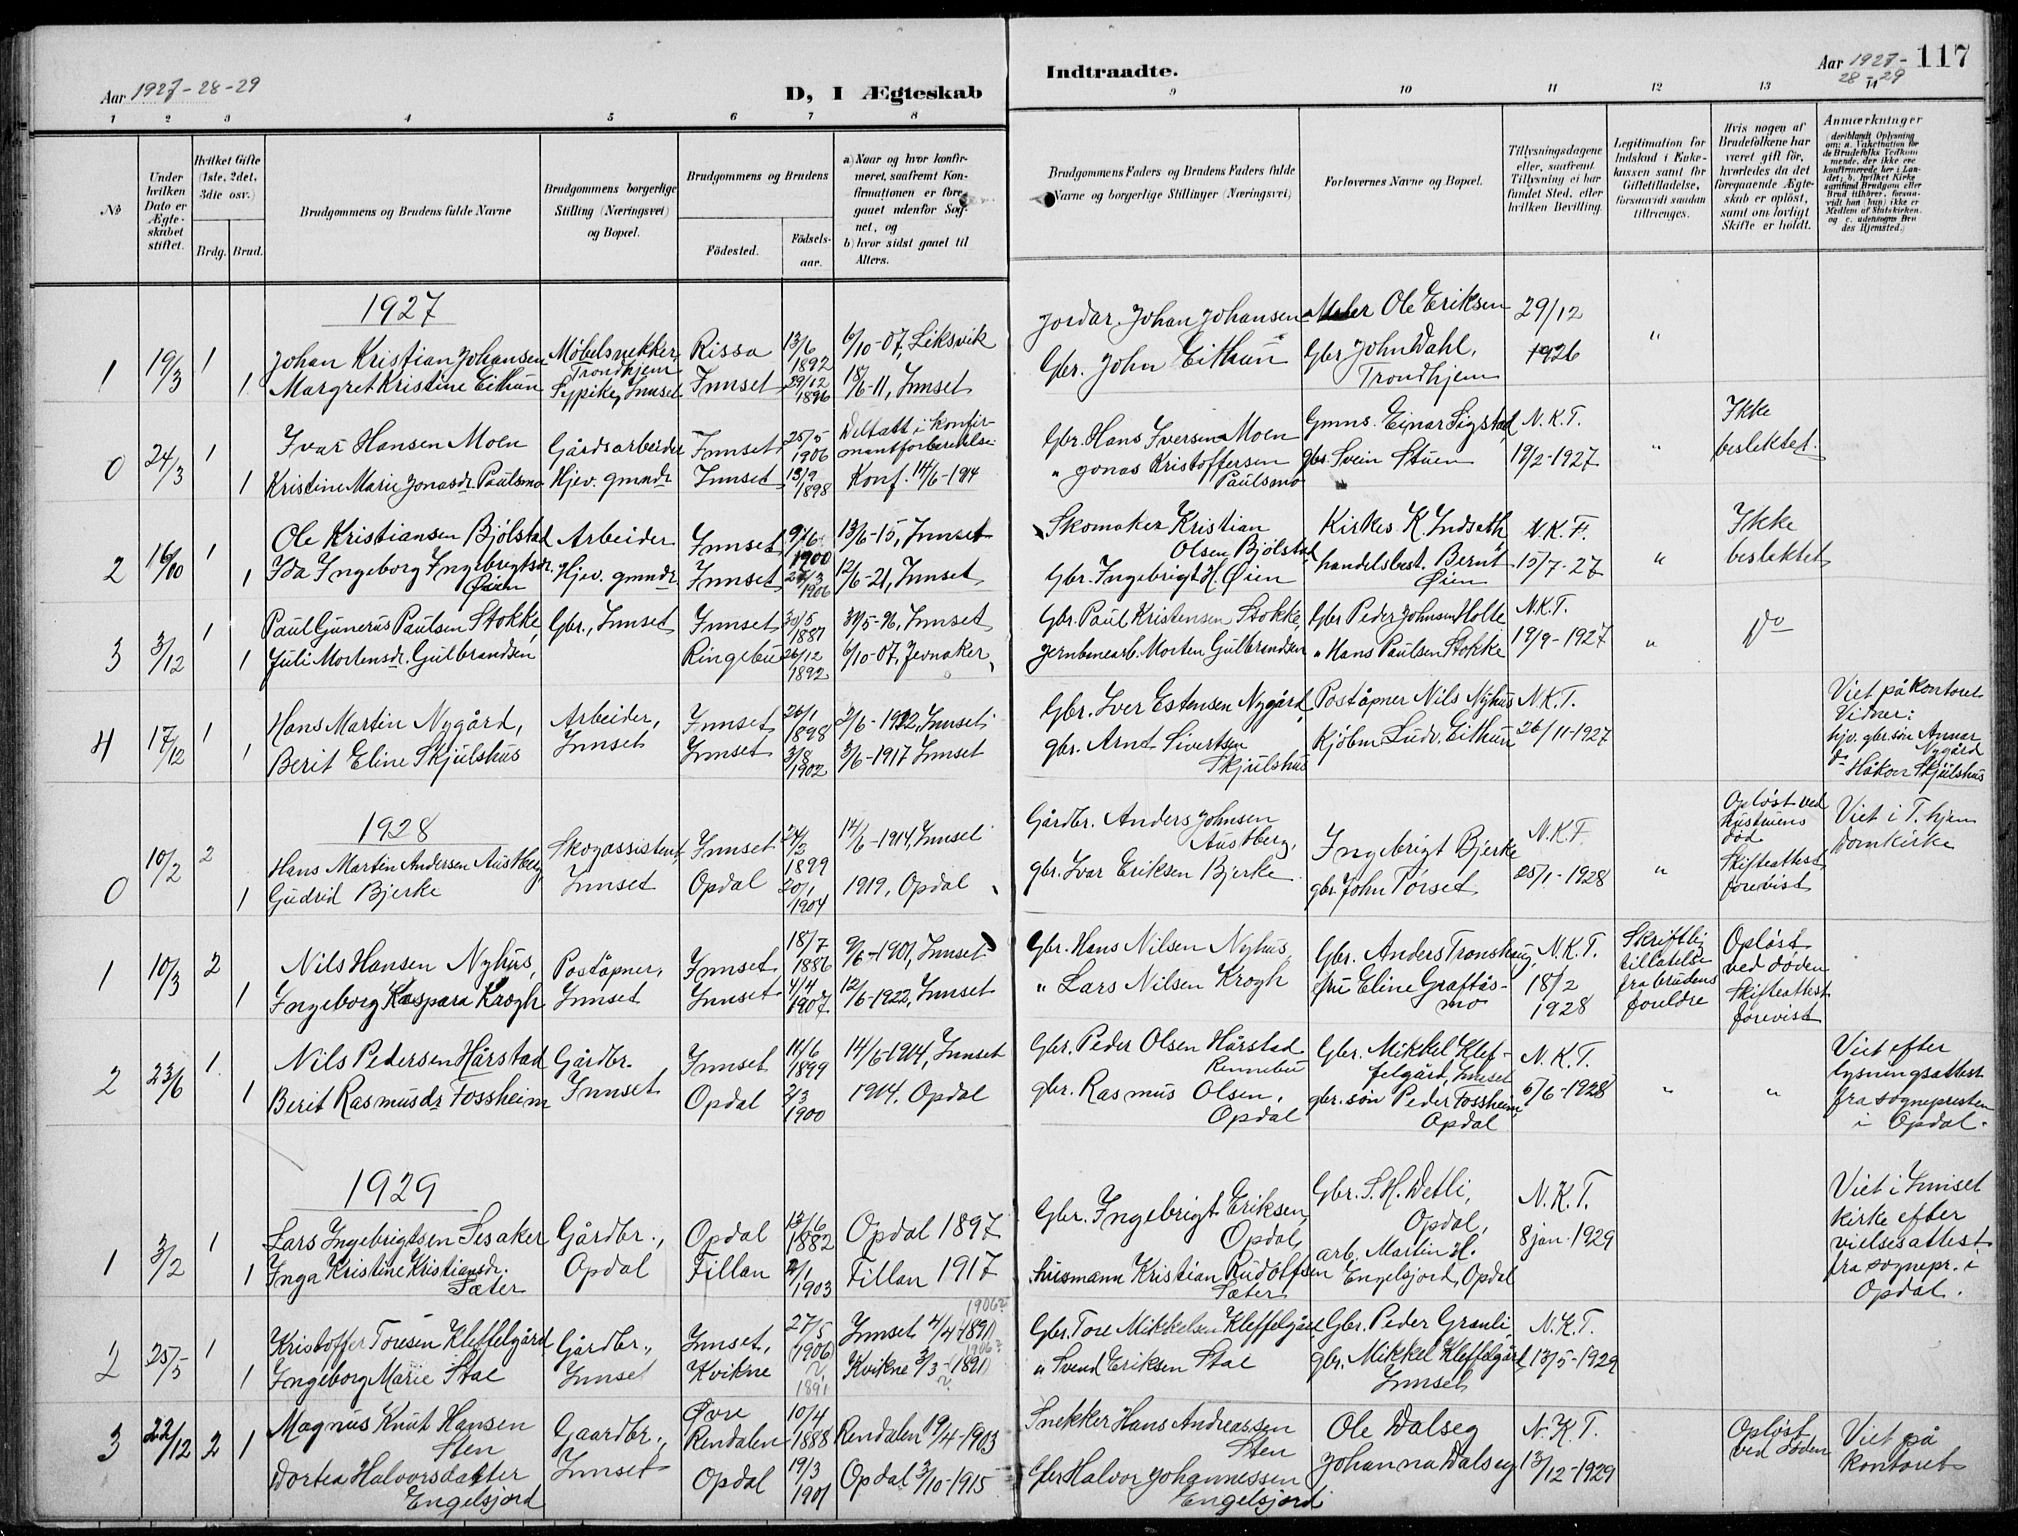 Aar 1927-28-29
D, I Ægteskab
Indtraadte.
Aar 1927-
28-29
117
1 2 3 4 5 6 7 8 9 10 11 12 13 14
No
Under hvilken Dato er Ægteskabet stiftet.
Hvilket Gifte (1ste, 2det, 3die osv.)
Brdg. Brud.
Brudgommens og Brudens fulde Navne
Brudgommens borgerlige Stilling (Næringsvei) og Bopæl.
Brudgommens og Brudens
Födested.
Födsels-aar.
a) Naar og hvor konfirmeret, saafremt Konfirmationen er foregaaet udenfor Sognet, og
b) hvor sidst gaaet til Alters.
Brudgommens Faders og Brudens Faders fulde Navne og borgerlige Stillinger (Næringsvei)
Forlovernes Navne og Bopæl.
Tillysningsdagene eller, saafremt Tillysning ei har fundet Sted, efter hvilken Bevilling.
Legitimation for Indskud i Enkekassen samt for Giftetilladelse, forsaavidt saadan tiltrænges.
Hvis nogen af Brudefolkene har været gift för, hvorledes da det foregaaende Ægteskab er oplöst, samt om lovligt Skifte er holdt.
Anmærkninger
(deriblandt Oplysning om: a. Vakcination for de Brudefolks Vedkommende, der ikke ere konfirmerede her i Landet; b. hvilket Kirkesamfund Brudgom eller Brud tilhörer, forsaavidt han (hun) ikke er Medlem af Statskirken, og c. udensogns Brudes Hjemsted.)
1927
1 19/3 1 Johan Kristian Johansen Møbelsnekker, Trondhjem Rissa 13/6 1892 6/10-07, Leksvik Jordar. Johan Johansen Maler Ole Eriksen 29/12 "
1 Margret Kristine Eithun Sypike, Innset Innset 29/12 1896 18/6-11, Innset Gbr. John Eithun Gbr John Dahl, Trondhjem 1926
0 24/3 1 Ivar Hansen Moen Gårdsarbeider Innset 25/5 1906 Deltatt i konfirmantforberedelse Gbr. Hans Iversen Moen Gmns. Einar Sigstad N.K.T. " Ikke beslektet
1 Kristine Marie Jonasdr. Paulsmo Hjev. gmndr Innset 13/9 1898 Konf. 14/6-1914 " Jonas Kristoffersen Paulsmo gbr. Svein Stuen 19/2-1927
2 16/10 1 Ole Kristiansen Bjölstad Arbeider Innset 9/6 1900 13/6-15, Innset Skomaker Kristian Olsen Bjölstad Kirkes. K. Indseth N.K.T. " Ikke beslektet
1 Ida Ingeborg Ingebrigtsdr. Øien Hjev. gmndr Innset 1906 12/6-21, Innset Gbr. Ingebrigt H. Øien handelsbest. Bernt Øien 15/7-27
3 3/12 1 Paul Gunerus Paulsen Stokke, Gbr., Innset Innset 30/5 1887 Innset Gbr. Paul Kristensen Stokke, Gbr Peder Johnsen Holte N.K.T. " Do
1 Juli Mortensdr. Gulbrandsen Ringebu 26/12 1892 6/10-07, Jevnaker Jernbanearb. Morten Gulbrandsen " Hans Paulsen Stokke 19/9-1927
4 17/12 1 Hans Martin Nygård, Arbeider, Innset Innset 26/1 1898 Innset Gbr. Iver Estensen Nygård, Poståpner Nils Nyhus N.K.T. Viet på kontoret
1 Berit Eline Skjulshus Innset 3/8 1902 3/6-1917 Innset gbr. Arnt Sivertsen Skjulshus Kjöbm Ludv. Eithun 26/11-1927 Vidner: hjv. gbr. sön Annar Nygård do Håkon Skjulshus
1928
0 10/2 2 Hans Martin Andersen Austberg, Skogassistent, Innset Innset 1899 14/6-1914, Innset Gårdbr. Anders Johnsen Austberg, Ingebrigt Bjerke N.K.T. " Opløst ved hustruens död Skifteattest forevist Viet i T.hjem Domkirke
1 Gudrid Bjerke Opdal 20/1 1904 1919, Opdal gbr. Ivar Eriksen Bjerke gbr. John Törset 25/1-1928
1 10/3 2 Nils Hansen Nyhus, Poståpner, Innset Innset 18/7 1886 9/6-1901, Innset Gbr. Hans Nilsen Nyhus Gbr. Anders Tronshaug, N.K.T. Skriftlig tillatelse fra brudens foreldre Opløst ved döden Skifteattest forevist
1 Ingeborg Kaspara Krogh Innset 4/4 1907 12/6-1922, Innset " Lars Nilsen Krogh fru Eline Graftåsmo 18/2 1928
2 23/6 1 Nils Pedersen Hårstad Gårdbr. Innset Innset 11/6 1899 14/6-1914, Innset Gbr. Peder Olsen Hårstad Rennebu Gbr. Mikkel Kleffelgård, Innset N.K.T. " " Viet efter lysningsattest fra sognepresten i Opdal.
1 Berit Rasmusdr Fossheim Opdal 2/3 1900 1914, Opdal gbr. Rasmus Olsen, Opdal gbr. sön Peder Fossheim Opdal 6/6-1928
1929
1 3/2 1 Lars Ingebrigtsen Sesaker Gårdbr., Opdal Opdal 13/6 1882 Opdal 1897 Gbr. Ingebrigt Eriksen, Opdal, Gbr. S.H. Detli, Opdal, N.K.T. Viet i Innset kirke efter vielsesattest fra sognepr. i Opdal.
1 Inga Kristine Kristiansdr. Sæter Fillan 2/1 1903 Fillan 1917 husmann Kristian Rudolfsen Sæter arb. Martin H. Engelsjord, Opdal 8 jan. 1929
2 25/5 1 Kristoffer Toresen Kleffelgård Gårdbr., Innset Innset, 27/5 (1906) Innset 4/4-1891) 1906? Gbr. Tore Mikkelsen Kleffelgård Gbr. Peder Granli N.K.T.
1 Ingeborg Marie Stae Kvikne ? 1891 Kvikne 3/3-(1891) 1906? ? " Svend Eriksen Stae gbr. Mikkel Kleffelgård, Innset 13/5-1929
3 22/12 2 1 Magnus Knut Hansen Sten Gaardbr., Innset Øvre Rendalen 10/4 1888 Rendalen 19/4-1903 Snekker Hans Andreassen Sten Ole Dalseg N.K.T. Opløst ved döden Viet på kontoret
Dortea Halvorsdatter Engelsjord Opdal 19/3 1901 Opdal 3/10-1915 Gbr Halvor Johannessen Engelsjord Johanna Dalseg 13/12-1929